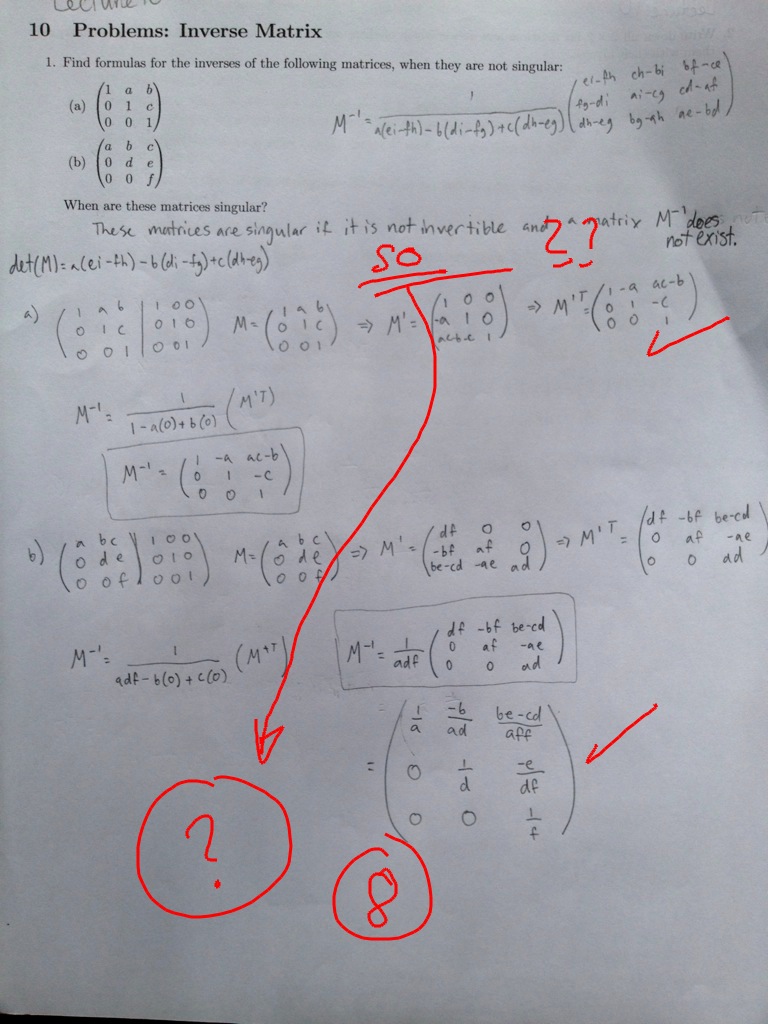 Lecture 10
10 Problems: Inverse Matrix
1. Find formulas for the inverses of the following matrices, when they are not singular:
(a) (1 a b
0 1 c
0 0 1)
(b) (a b c
0 d e
0 0 f)
M⁻¹ = 1 / a(ei-fh)-b(di-fg)+c(dh-eg) (ei-fh ch-bi bf-ce
fg-di ai-cg cd-af
dh-eg bg-ah ae-bd)
When are these matrices singular?
These matrices are singular if it is not invertible and a matrix M⁻¹ does not
not exist.
??
det(M)=a(ei-fh)-b(di-fg)+c(dh-eg)
SO
a) (1 a b | 1 0 0
0 1 c | 0 1 0
0 0 1 | 0 0 1) M=(1 a b
0 1 c
0 0 1) ⇒ M'=(1 0 0
-a 1 0
ac-b -c 1) ⇒ M'T=(1 -a ac-b
0 1 -c
0 0 1)
M⁻¹= 1 / 1-a(0)+b(0) (M'T)
M⁻¹ = (1 -a ac-b
0 1 -c
0 0 1)
b) (a b c | 1 0 0
0 d e | 0 1 0
0 0 f | 0 0 1) M=(a b c
0 d e
0 0 f) ⇒ M'=(df 0 0
-bf af 0
be-cd -ae ad) ⇒ M'T=(df -bf be-cd
0 af -ae
0 0 ad)
M⁻¹= 1 / adf-b(0)+c(0) (M'T)
M⁻¹= 1/adf (df -bf be-cd
0 af -ae
0 0 ad)
= (1/a -b/ad be-cd/aff
0 1/d -e/df
0 0 1/f)
?
8